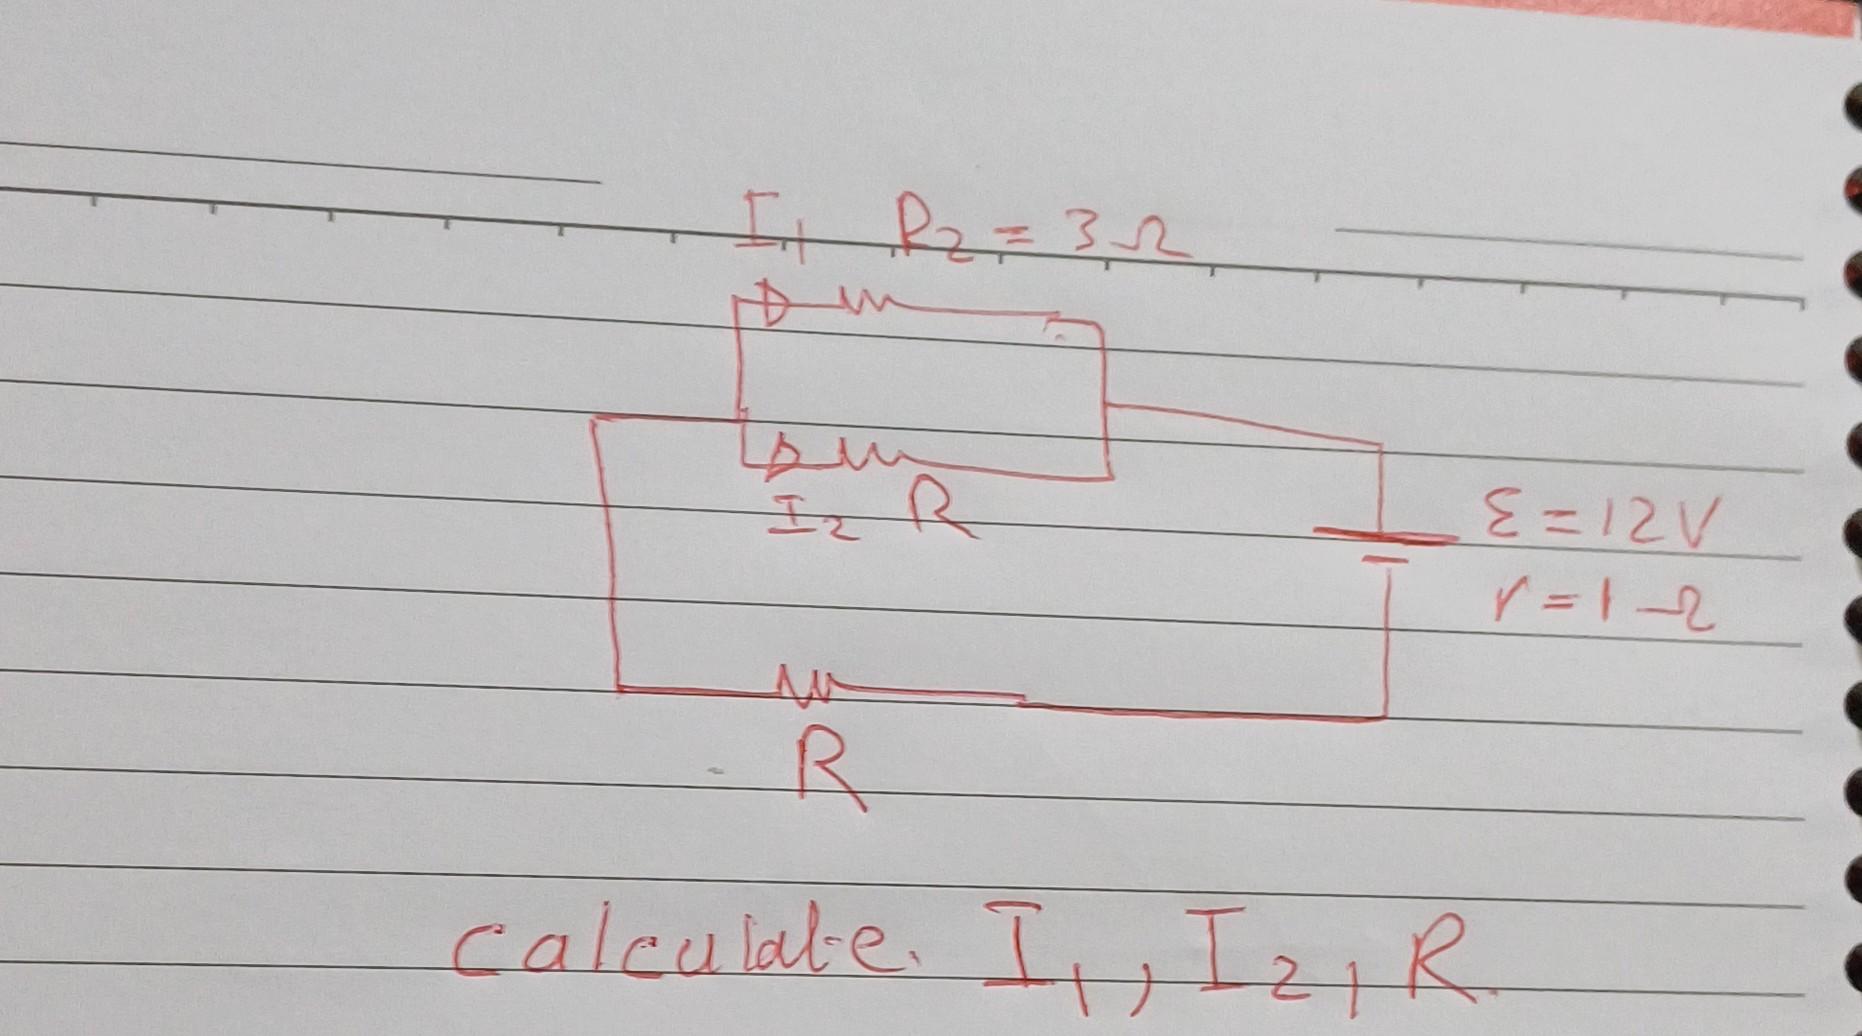 I₁ R₂ = 3Ω
I₂ R
ε = 12V
r = 1Ω
R
calculate. I₁, I₂, R.